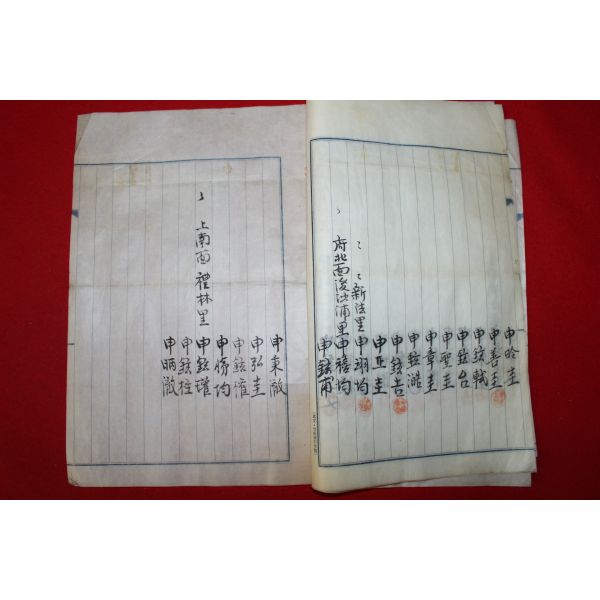 申昤圭
申善圭
申鉉軾
申鉉台
申聖圭
申章圭
申鉉澔
申鉉吉
申亚圭
〻〻新法里 申翊均
〻府北面後沙浦里 申禧均
申鉉甫
申東澈
申弘圭
申鉉
申均
〻上南面禮林里 申鉉瓘
申鉉柱
申昞澈